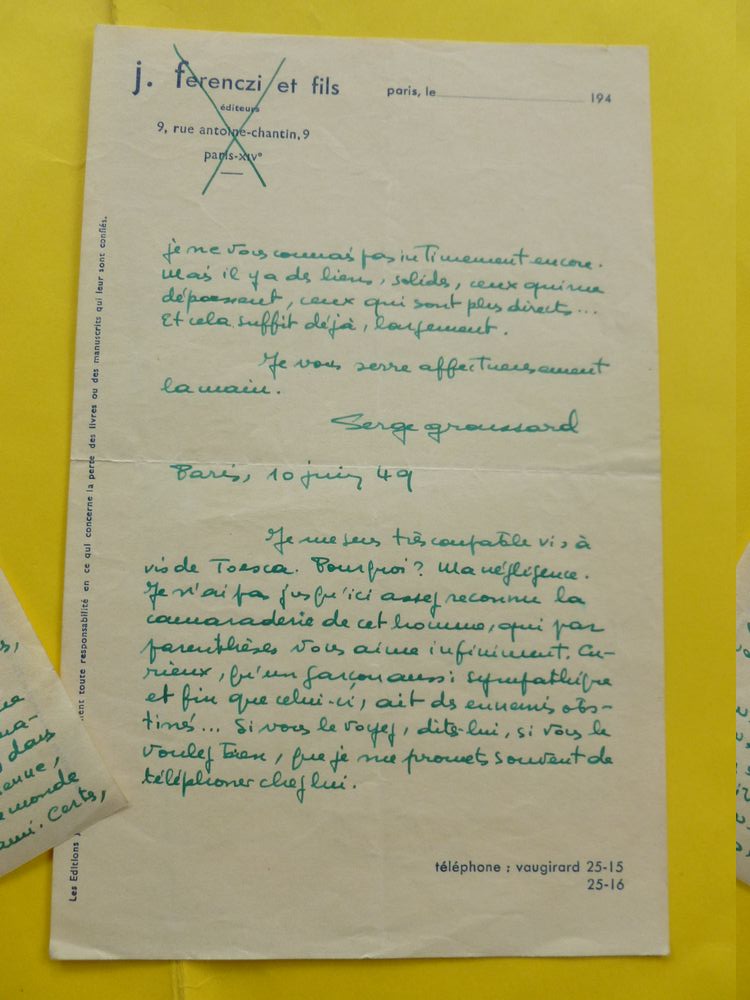 j. ferenczi et fils
éditeurs
9, rue antoine-chantin, 9
paris-XIVe
paris, le 194
je ne vous connais pas intimement encore.
Mais il y a des liens, solides, ceux qui me
dépassent, ceux qui sont plus directs...
Et cela suffit déjà, largement.
Je vous serre affectueusement
la main.
Serge Groussard
Paris, 10 juin 49
Je me sens très coupable vis à
vis de Toesca. Pourquoi? Ma négligence.
Je n'ai pas jusqu'ici assez reconnu la
camaraderie de cet homme, qui par
parenthèses vous aime infiniment. Cu-
rieux, qu'un garçon aussi sympathique
et fin que celui-ci, ait des ennemis obs-
tinés... Si vous le voyez, dites-lui, si vous le
voulez bien, que je me promets souvent de
téléphoner chez lui.
téléphone : vaugirard 25-15
25-16
Les Editions J. toute responsabilité en ce qui concerne la perte des livres ou des manuscrits qui leur sont confiés.
dans
monde
ami. Certes,